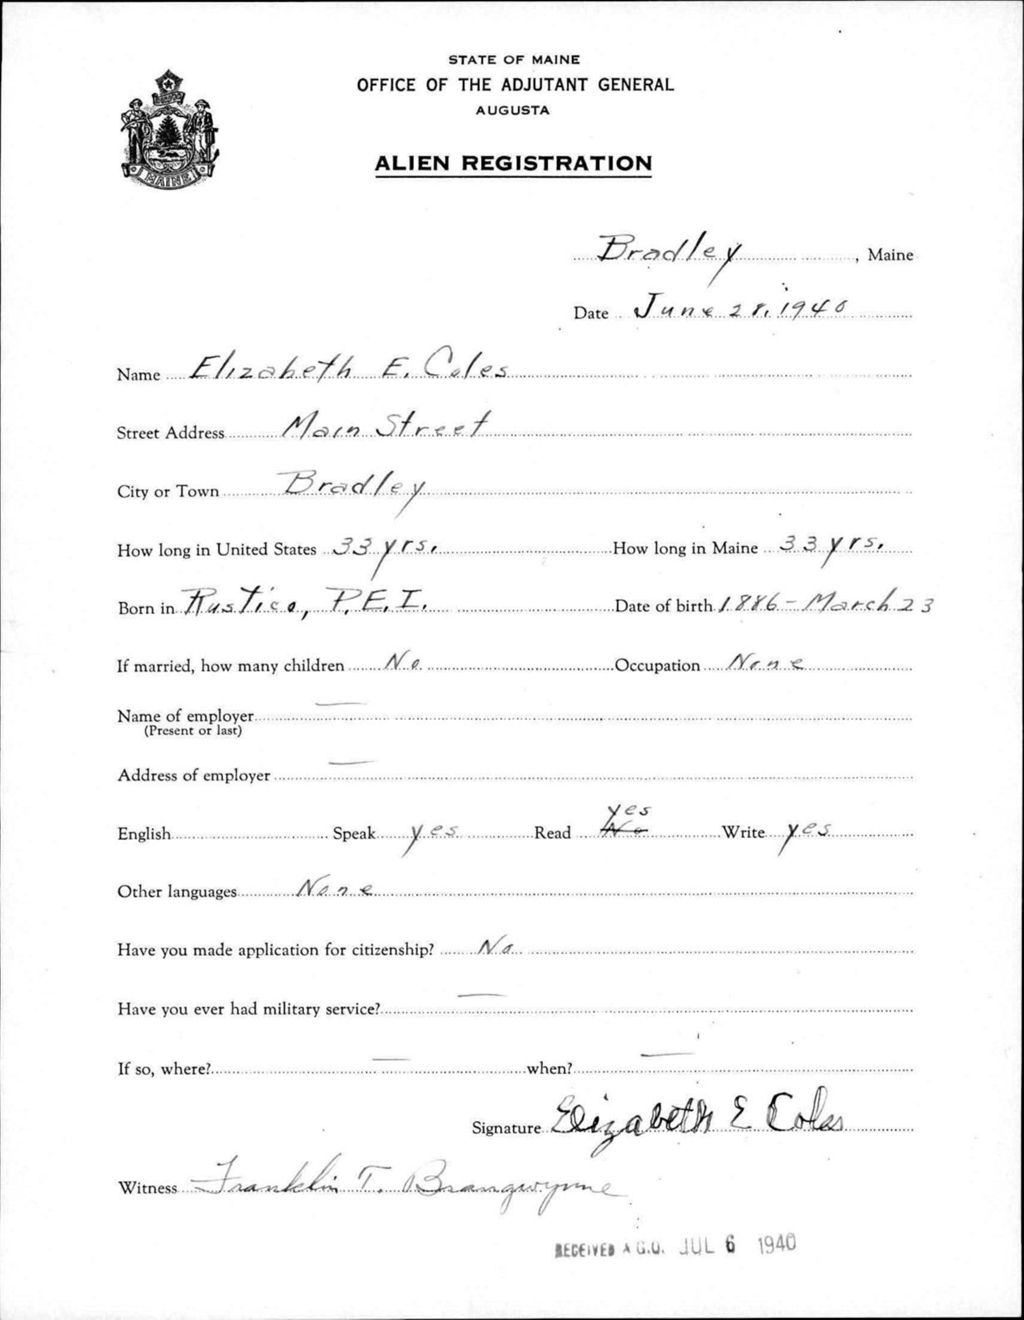 STATE OF MAINE
OFFICE OF THE ADJUTANT GENERAL
AUGUSTA
ALIEN REGISTRATION
MAINE
Bradley, Maine
Date June 28, 1940
Name Elizabeth E. Coles
Street Address Main Street
City or Town Bradley
How long in United States 33 yrs. How long in Maine 33 yrs.
Born in Rustico, P.E.I. Date of birth 1886 - March 23
If married, how many children No Occupation None
Name of employer —
(Present or last)
Address of employer —
English Speak yes Read No yes Write yes
Other languages None
Have you made application for citizenship? No
Have you ever had military service? —
If so, where? — when? —
Signature Elizabeth E Coles
Witness Franklin T. Brangwynne
RECEIVED A.G.O. JUL 6 1940